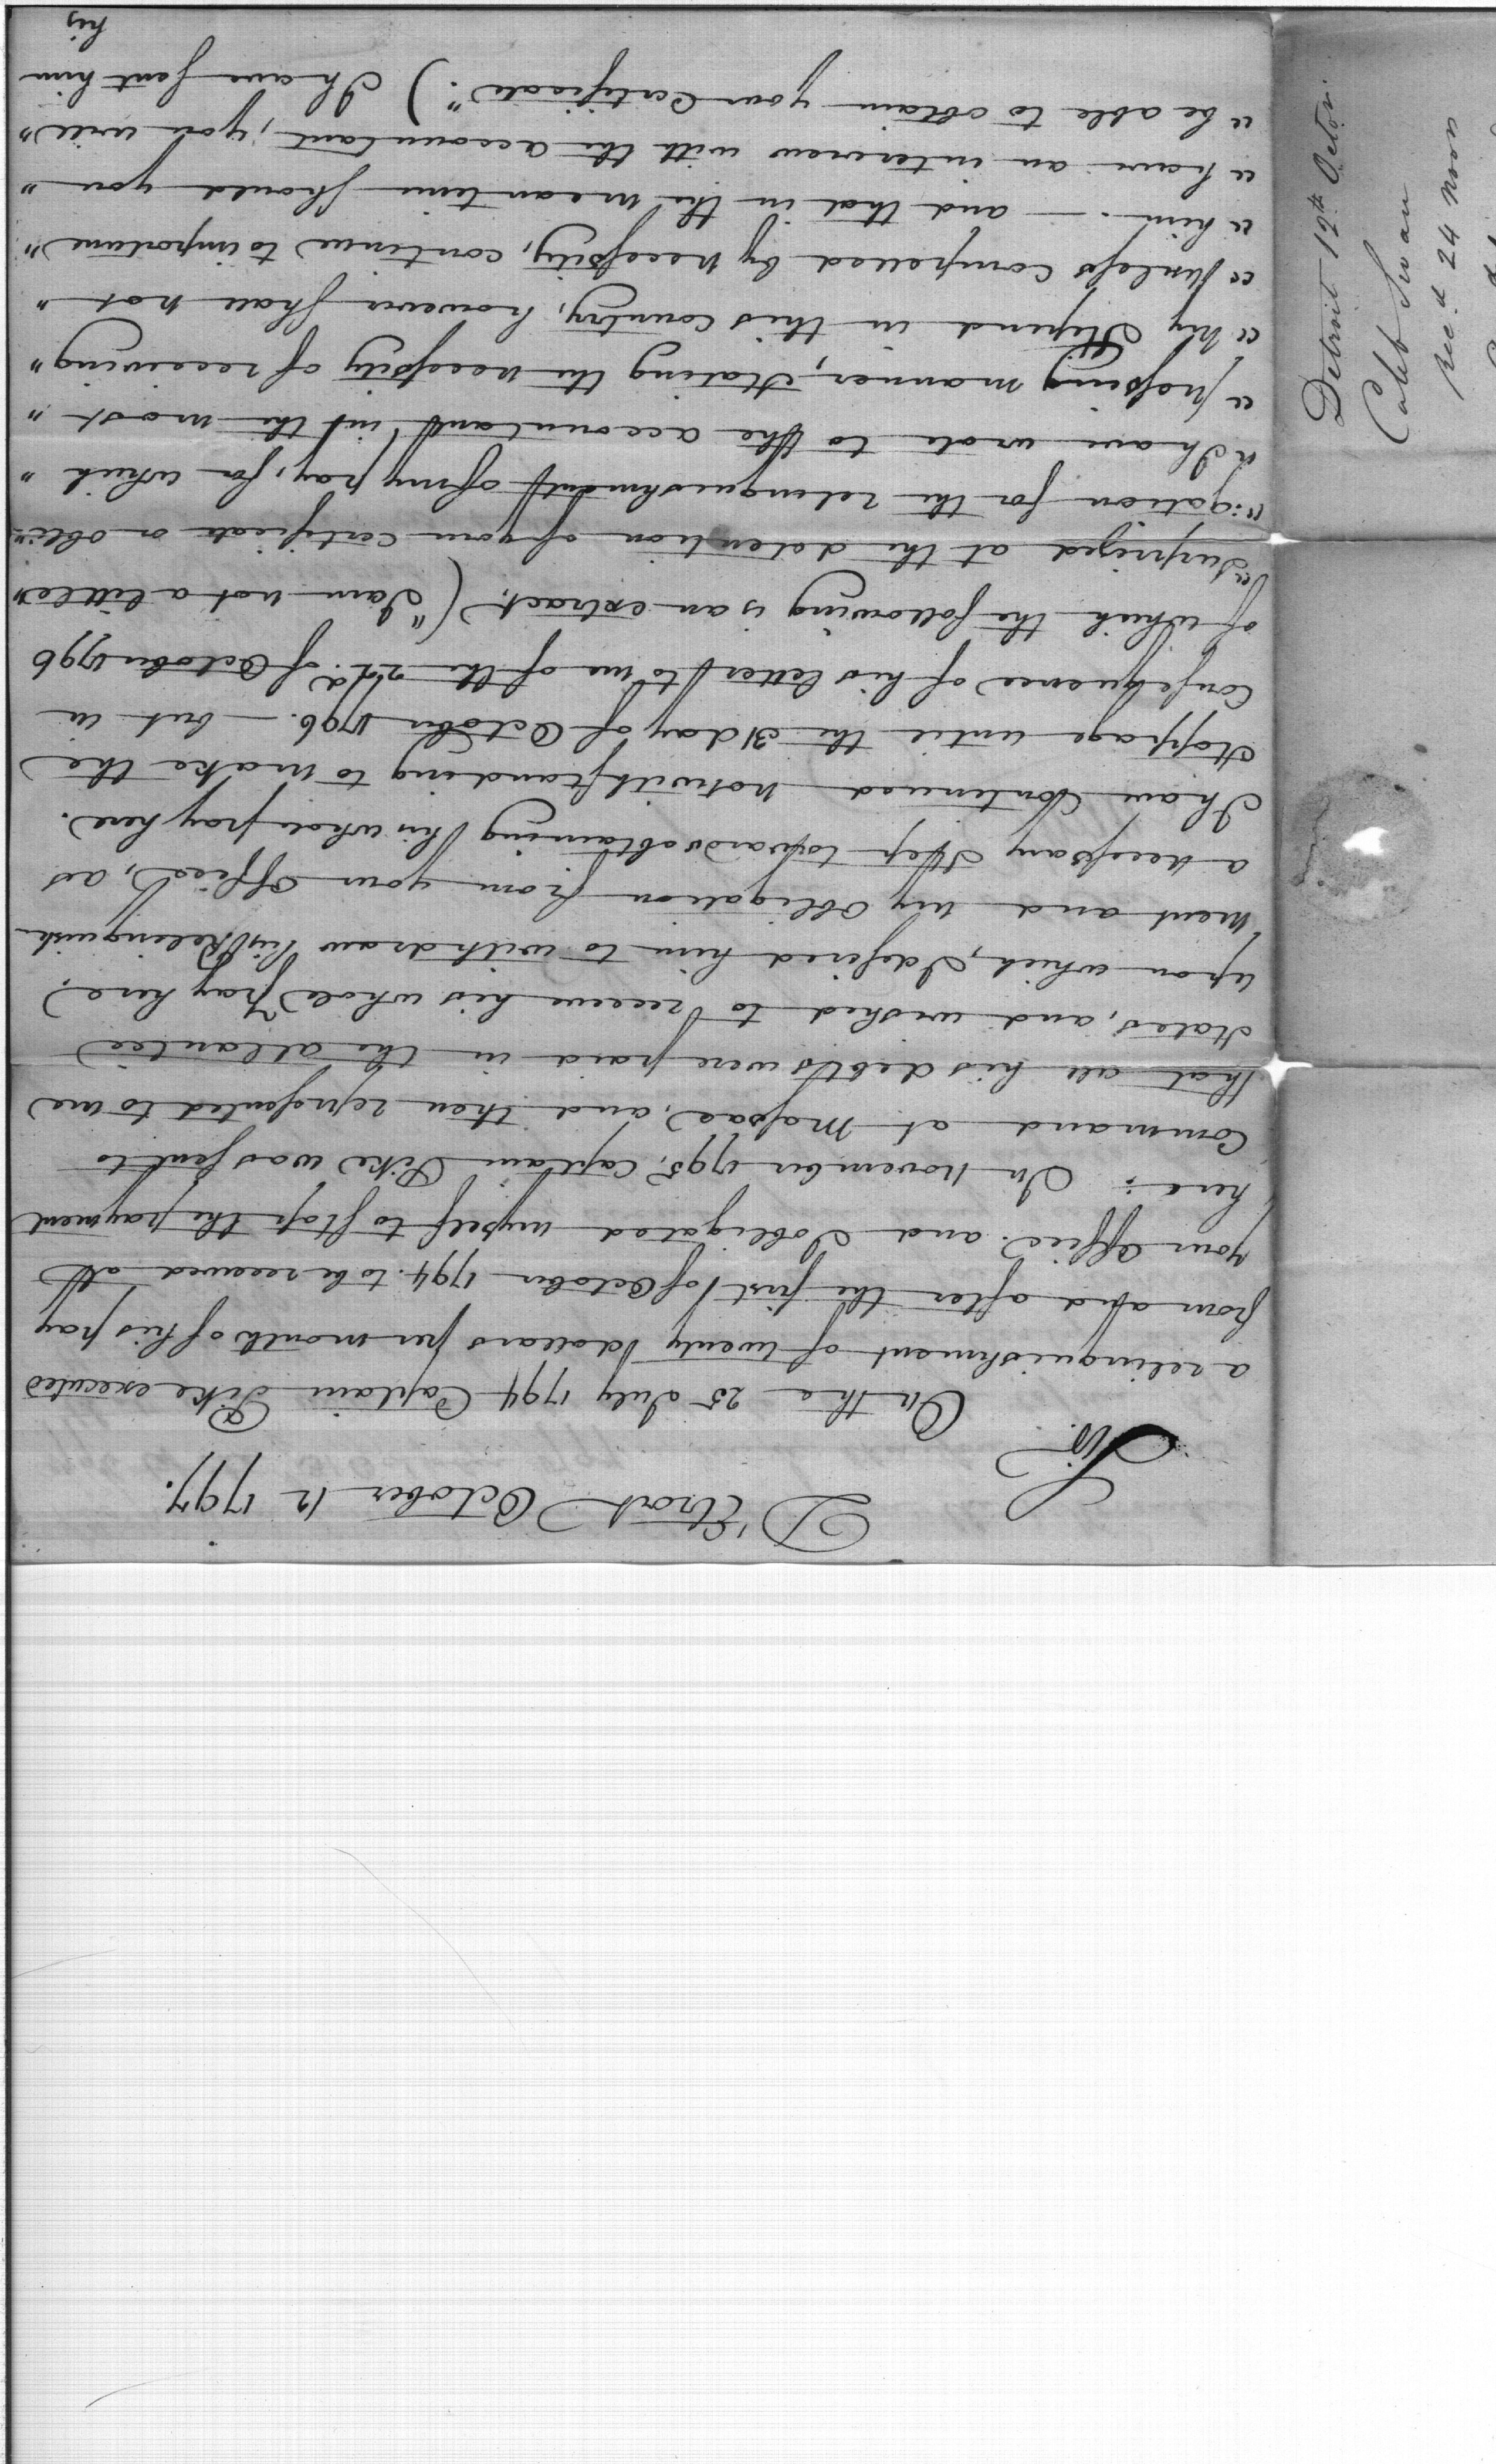 D'Etroit October 12 1797.
Sir
On the 25 July 1794 Captain Pike executed
a relinquishment of twenty dollars per month of his pay
from and after the first of October 1794. to be received at
your office. and I obligated myself to stop the payment
here: In November 1795, Captain Pike was sent to
Command at Massac, and then represented to me
that all his debts were paid in the atlantic
states, and wished to receive his whole pay here,
upon which, I desired him to withdraw his Relinquish-
ment and my obligation from your office, as
a necessary step towards obtaining his whole pay here.
I have Continued notwithstanding to make the
stoppage until the 31 day of October 1796. - but in
Consequence of his letter to me of the 22d. of October 1796
of which the following is an extract. ("I am not a little"
"surprized at the detention of your certificate or obli-"
":gation for the relinquishment of my pay, for which "
"I have wrote to the accountant in the most "
"pressing manner, stating the necessity of receiving "
"my stipend in this country, however shall not "
"unless compelled by necessity, continue to importune "
"him. - . - and that in the mean time should you "
"have an interview with the accountant, you will "
"be able to obtain your Certificate".) I have sent him
his
Detroit 12th Octor.
Caleb Swan
Rec.d 24 Nov